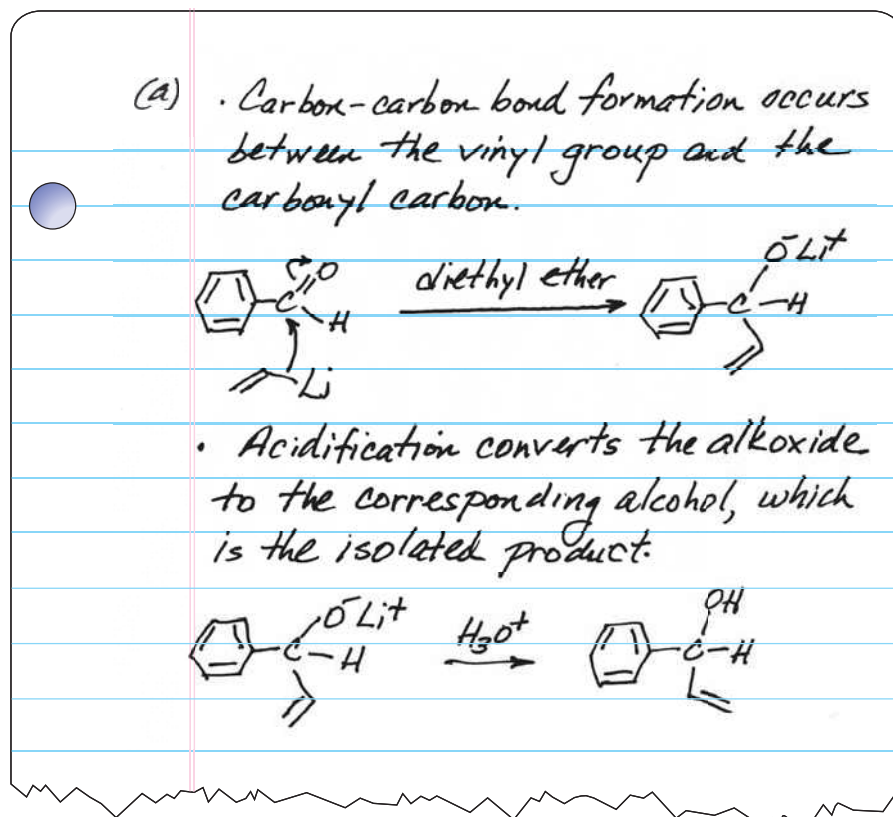 (a) · Carbon-carbon bond formation occurs
between the vinyl group and the
carbonyl carbon.
O
C
H
Li
diethyl ether
O⁻Li⁺
C—H
· Acidification converts the alkoxide
to the corresponding alcohol, which
is the isolated product.
O⁻Li⁺
C—H
H₃O⁺
OH
C—H